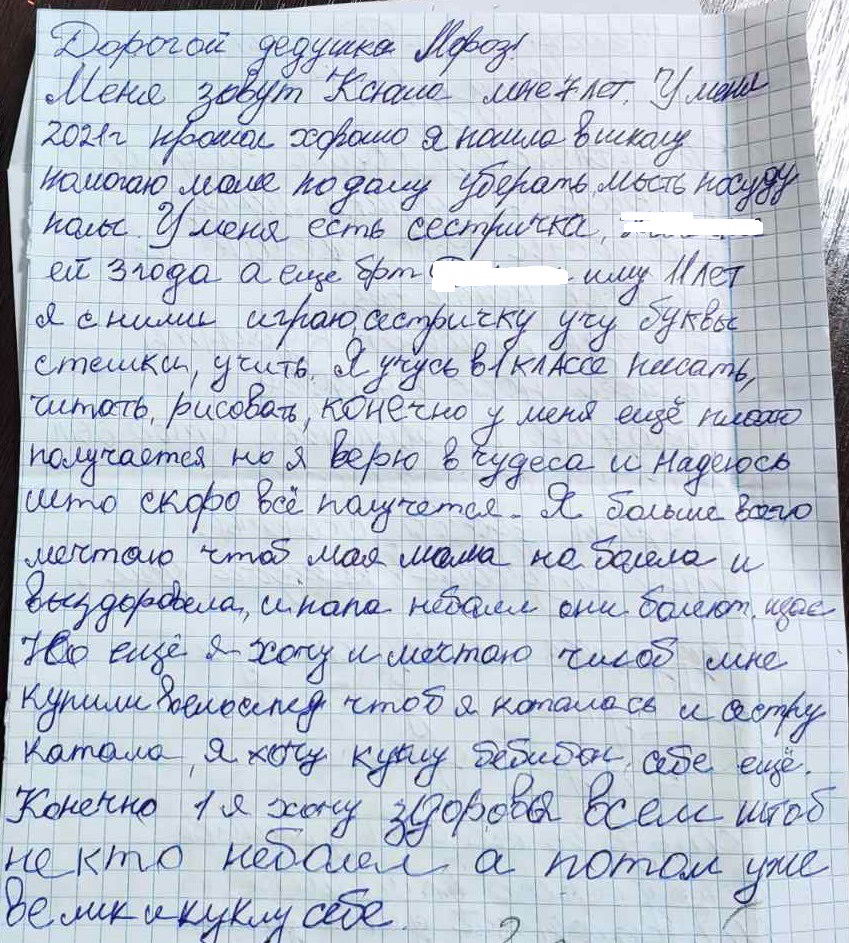 Дорогой дедушка Мороз!
Меня зовут Ксюша мне 7 лет. У меня
2021г прошол хорошо я пошла вшколу
памогаю маме по даму уберать, мыть посуду
полы. У меня есть сестричка,
ей 3 года а еще брт иму 11 лет
я с ними играю, сестричку учу буквы
стешки, учить. Я учусь в 1 классе писать,
читать, рисовать, конечно у меня ещё плохо
получается но я верю в чудеса и надеюсь
што скоро всё получется. Я больше всего
мечтаю чтоб мая мама не болела и
выздоровела, и папа неболел они болеют щас
Но ещё я хочу и мечтаю чтоб мне
купили велосипед чтоб я каталась и сестру
катала, я хочу куклу бебибон себе ещё.
Конечно 1 я хочу здоровья всем штоб
некто неболел а потом уже
велик и куклу себе.